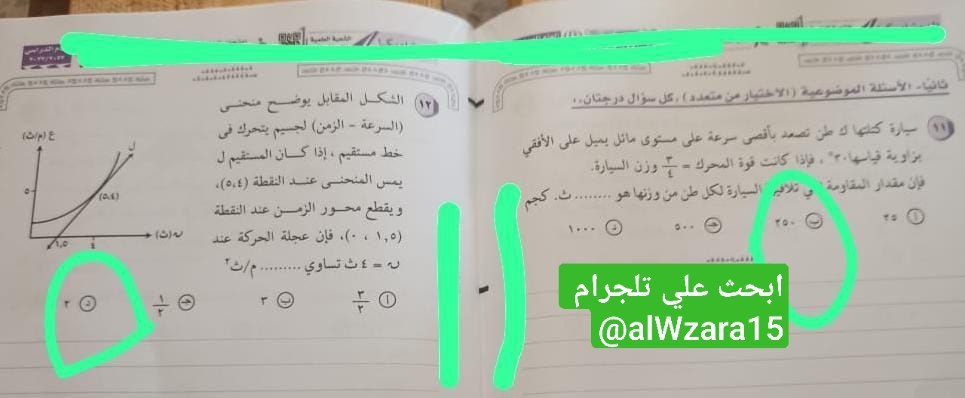 ثانيًا- الأسئلة الموضوعية (الاختيار من متعدد)، كل سؤال درجتان..
١١ سيارة كتلتها ك طن تصعد بأقصى سرعة على مستوى مائل يميل على الأفقي
بزاوية قياسها ٣٠°، فإذا كانت قوة المحرك = ٣/٤ وزن السيارة.
فإن مقدار المقاومة التي تلاقيها السيارة لكل طن من وزنها هو ........ ث. كجم
أ ٢٥ ب ٢٥٠ جـ ٥٠٠ د ١٠٠٠
ابحث علي تلجرام
@alWzara15
١٢ الشكل المقابل يوضح منحنى
(السرعة - الزمن) لجسيم يتحرك في
خط مستقيم، إذا كان المستقيم ل
يمس المنحنى عند النقطة (٥،٤)،
ويقطع محور الزمن عند النقطة
(١,٥ ، ٠)، فإن عجلة الحركة عند
ن = ٤ ث تساوي ......... م/ث٢
أ ٣/٢ ب ٣ جـ ١/٢ د ٢
ع (م/ث)
ل
٥
(٥،٤)
١,٥
٤
ن (ث)